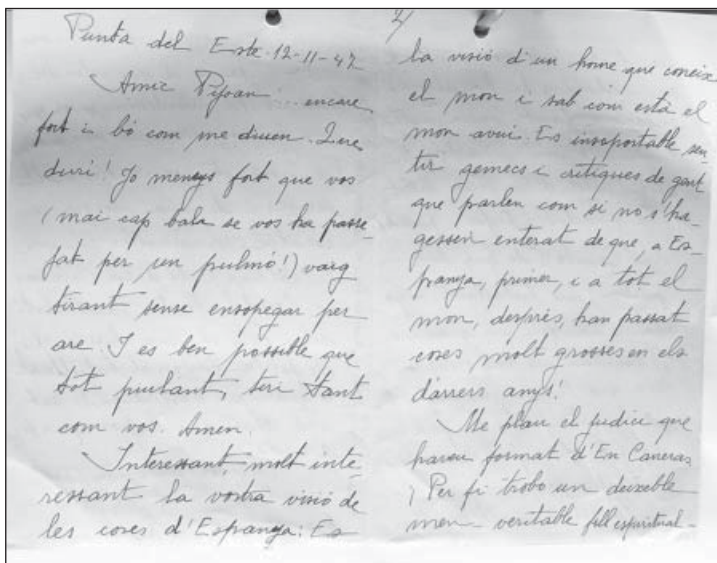 Punta del Este-12-11-47
Amic Pijoan encare
fort i bó com me diuen. I que
duri! Jo menys fort que vos
(mai cap bala se vos ha passe-
jat per un pulmó!) vaig
tirant sense ensopegar per
are. I es ben possible que
tot puchant, tiri tant
com vos. Amen.
Interessant, molt inte-
ressant la vostra visió de
les coses d'Espanya: Es
2/
la visió d'un home que coneix
el mon i sab com està el
mon avui. Es insoportable sen-
tir gemecs i critiques de gent
que parlen com si no s'ha-
gessen enterat de que, a Es-
panya, primer, i a tot el
mon, desprès, han passat
coses molt grosses en els
darrers anys!
Me plau el judici que
haveu format d'En Careras
¡Per fi trobo un deixeble
meu - veritable fill espiritual -